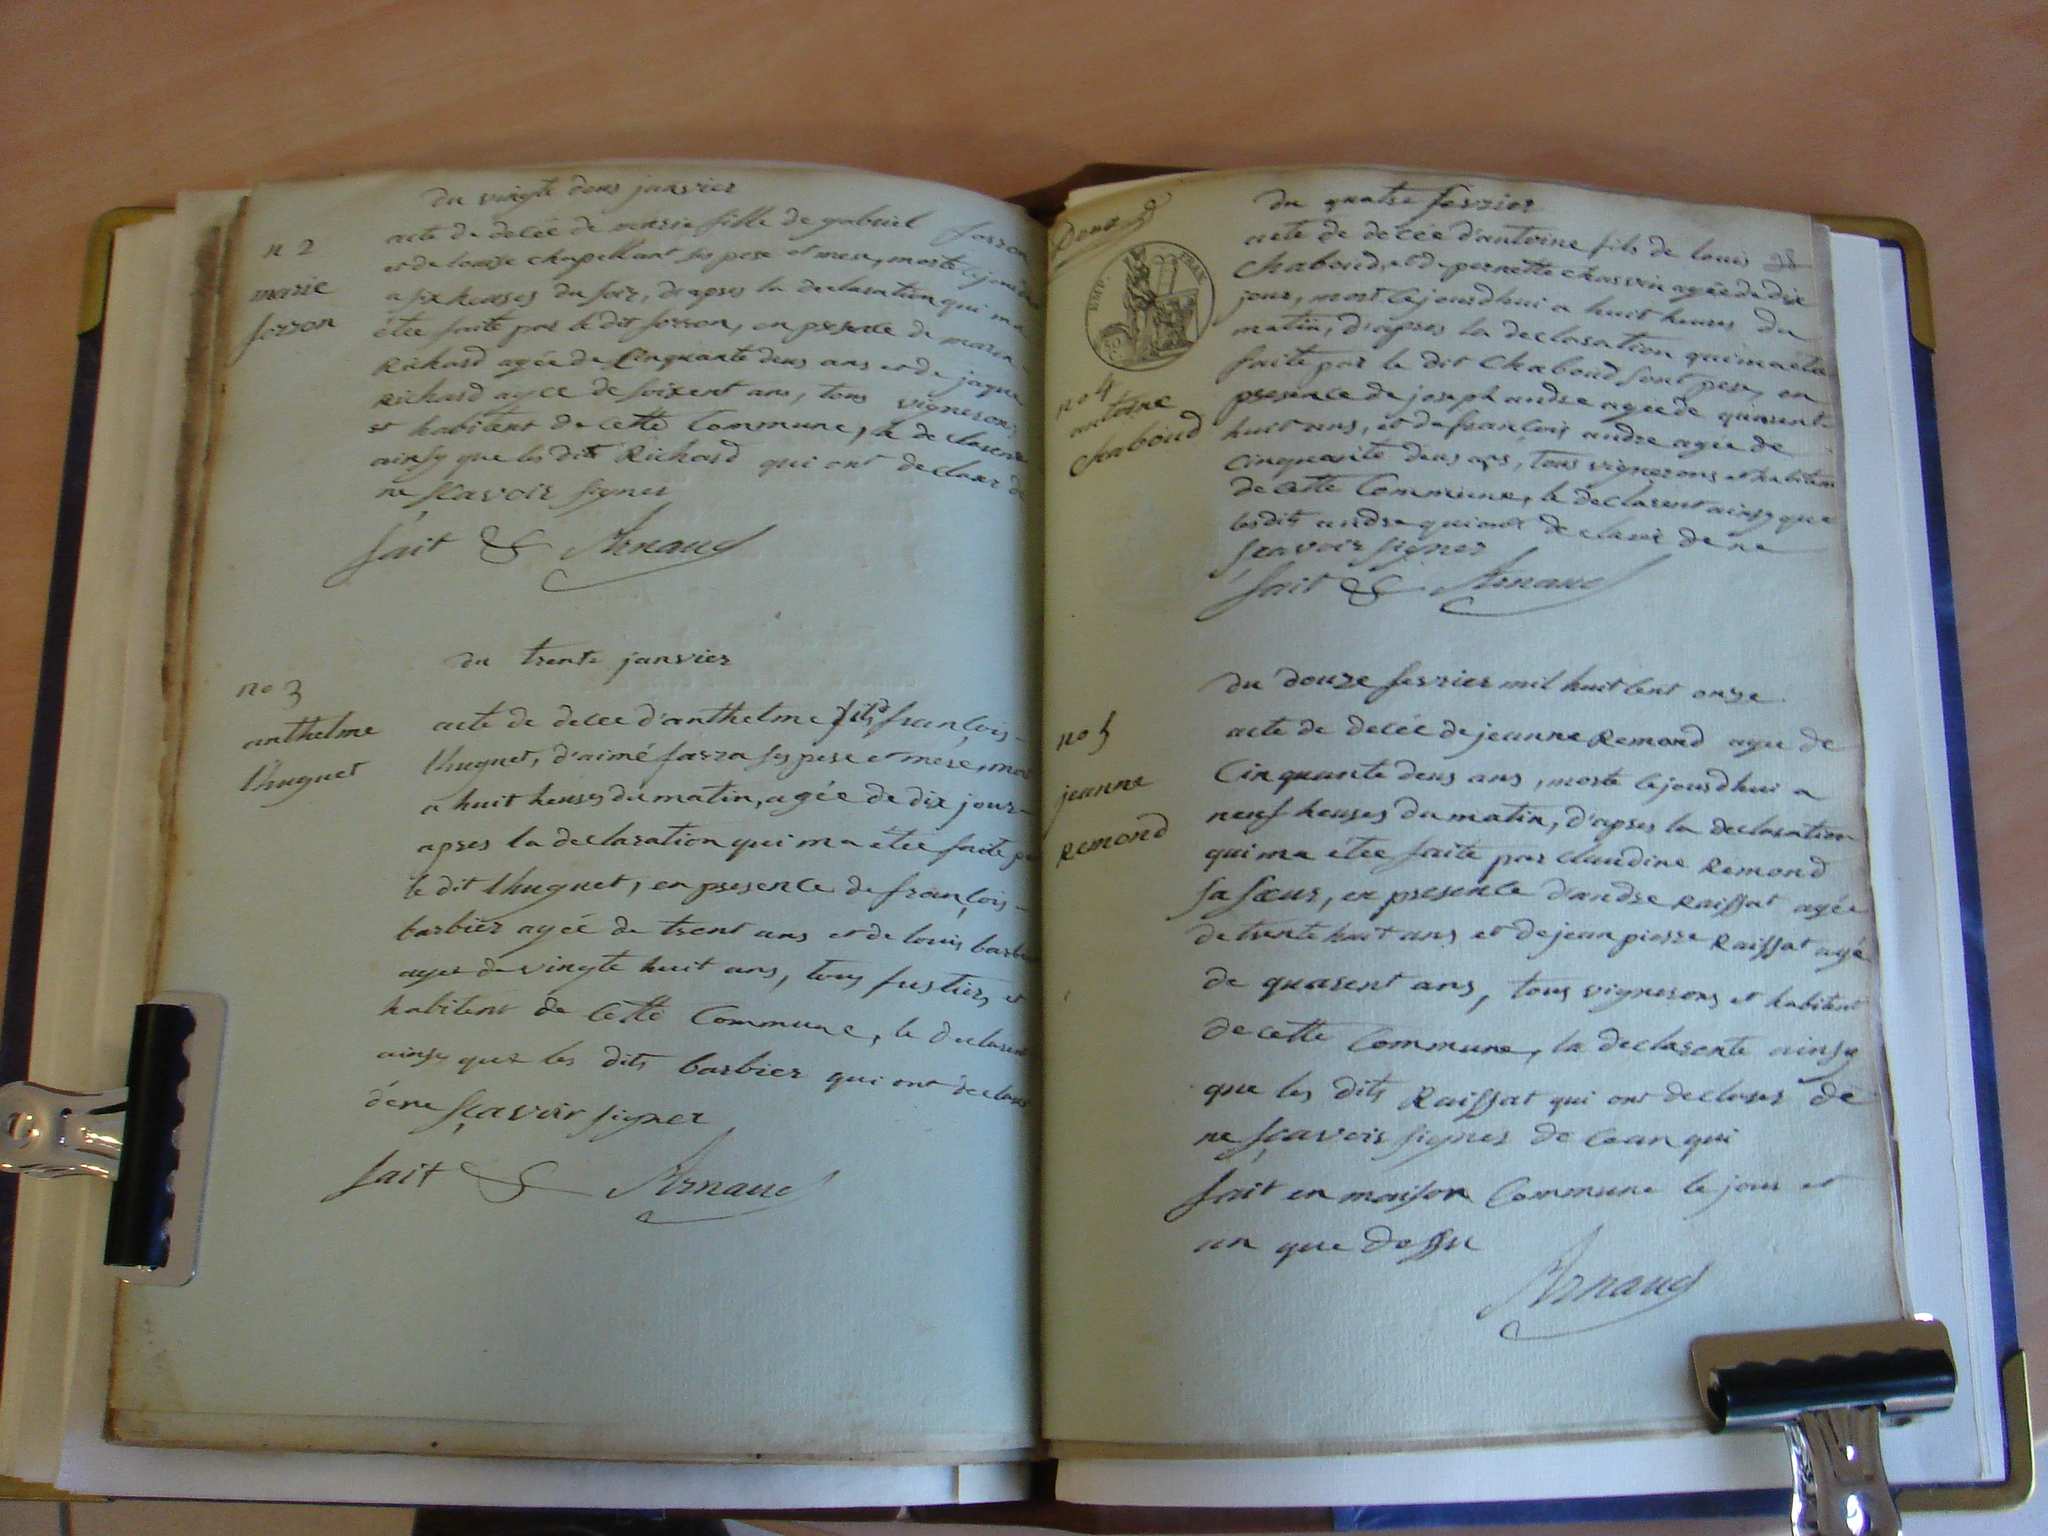 du vingte deus janvier
n 2
marie
forron
acte de decée de marie fille de gabriel forron
et de louise chapellant ses pere et mere, morte cejourdhui
a six heures du soir, d'apres la declaration qui ma
étée faite par le dit forron, en presence de
Richard agée de Cinquante deus ans et de jaque
Richard agée de soixent ans, tous vignerons,
et habitent de cette Commune, le declarent
ainsy que les dits Richard qui ont declarer de
ne sçavoir signer
fait & Arnaud
du trente janvier
no 3
anthelme
thuguet
acte de decée d'anthelme fils françois
thuguet, d'aimé farra ses pere et mere, mort
a huit heures du matin, agée de dix jour
apres la declaration qui ma étée faite
le dit thuguet, en presence de françois
barbier agée de trent ans et de louis barbier
agee de vingte huit ans, tous fustier, et
habitent de cette Commune, le declarent
ainsy que les dits barbier qui ont declarer
de ne sçavoir signer
fait & Arnaud
du quatre fevrier
38
no 4
antoine
chaboud
acte de decée d'antoine fils de louis
Chaboud, et de pernette chavrin agée de dix
jour, mort cejourdhui a huit heures du
matin, d'apres la declaration qui ma éte
faite par le dit Chaboud sont pere, en
presence de joseph andre agée de quarent
huit ans, et de françois andre agée de
Cinquante deus ans, tous vignerons et habitent
de cette Commune, le declarent ainsy que
les dits andre qui ont declarer de ne
sçavoir signer
fait & Arnaud
du douze fevrier mil huit cent onze
no 5
jeanne
Remond
acte de decée de jeanne Remond agee de
Cinquante deus ans, morte cejourdhui a
neuf heures du matin, d'apres la declaration
qui ma etee faite par claudine Remond
sa sœur, en presence d'andre Raissat agée
de trente huit ans et de jean pierre Raissat agé
de quarent ans, tous vignerons et habitent
de cette Commune, la declarente ainsy
que les dits Raissat qui ont declarer de
ne sçavoir signer de ce an qui
fait en maison Commune le jour et
an que dessu
Arnaud